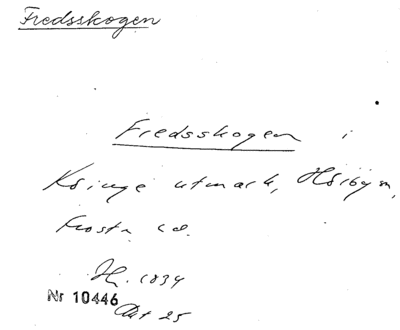 Fredsskogen
Fredsskogen i
Ksinge utmark, Hörbyn,
Frosta hd.
H. 1834
Nr 10446
Akt 25